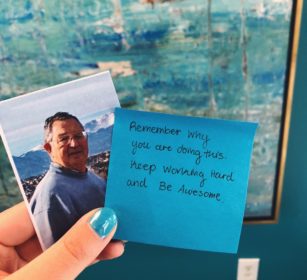 Remember why
you are doing this.
Keep Working Hard
and Be Awesome